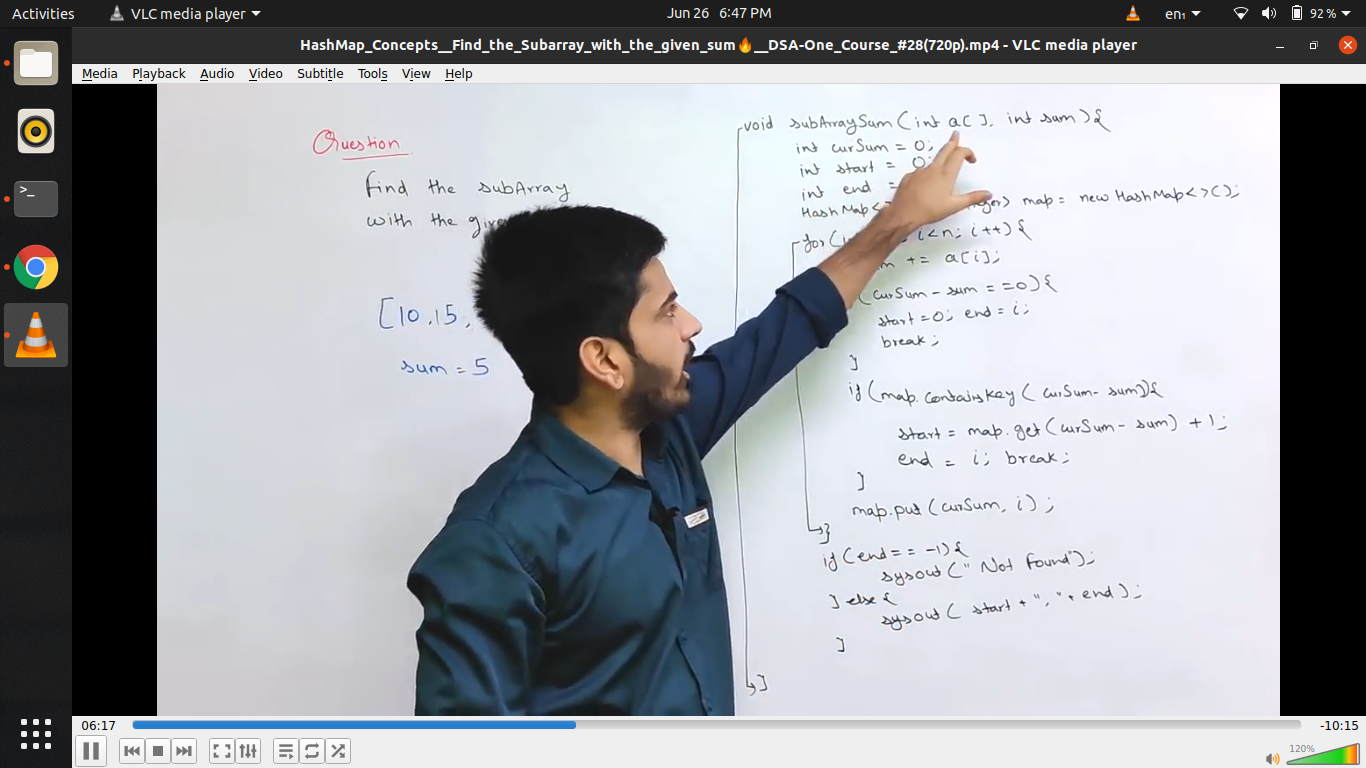 Activities
VLC media player
Jun 26 6:47 PM
en₁
92 %
HashMap_Concepts__Find_the_Subarray_with_the_given_sum🔥__DSA-One_Course_#28(720p).mp4 - VLC media player
Media Playback Audio Video Subtitle Tools View Help
Question
Find the subArray
with the
[10, 15,
sum = 5
void subArraySum(int a[], int sum){
int curSum = 0;
int start = 0;
int end =
HashMap< map = new HashMap<>();
for( i<n; i++){
+= a[i];
(curSum - sum == 0){
start=0; end = i;
break;
}
if(map.containsKey(curSum-sum)){
start = map.get(curSum - sum) +1;
end = i; break;
}
map.put(curSum, i);
}
if(end == -1){
sysout(" Not Found");
} else {
sysout( start + ", " + end );
}
}
06:17
-10:15
120%